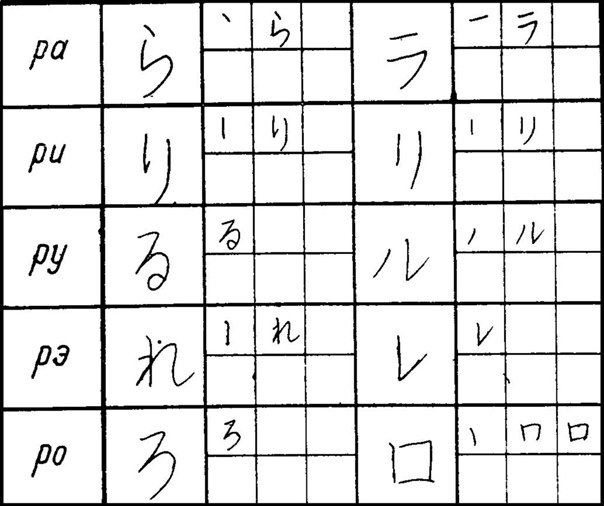 ра ら 丶 ら ラ 一 ラ
ри り 丨 り リ 丨 リ
ру る る ル ノ ル
рэ れ 丨 れ レ レ
ро ろ ろ ロ 丨 ㇕ ロ